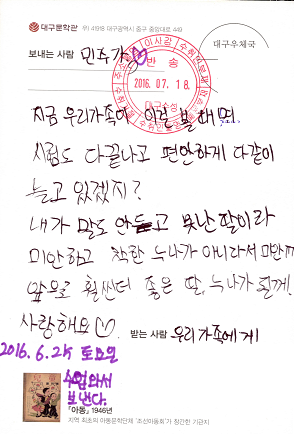 대구문학관 우) 41918 대구광역시 중구 중앙대로 449
보내는 사람 민주가♡
대구우체국
이사감
반송
2016. 07. 18.
대구수성
지금 우리가족이 이걸 볼때면
시험도 다끝나고 편안하게 다같이
놀고 있겠지?
내가 말도 안듣고 못난딸이라
미안하고 착한 누나가 아니라서 미안해
앞으로 훨씬더 좋은 딸, 누나가 될게!
사랑해요♡
받는 사람 우리가족에게
2016. 6. 25 토요일
수업와서
보낸다.
『아동』 1946년
지역 최초의 아동문학단체 '조선아동회'가 창간한 기관지